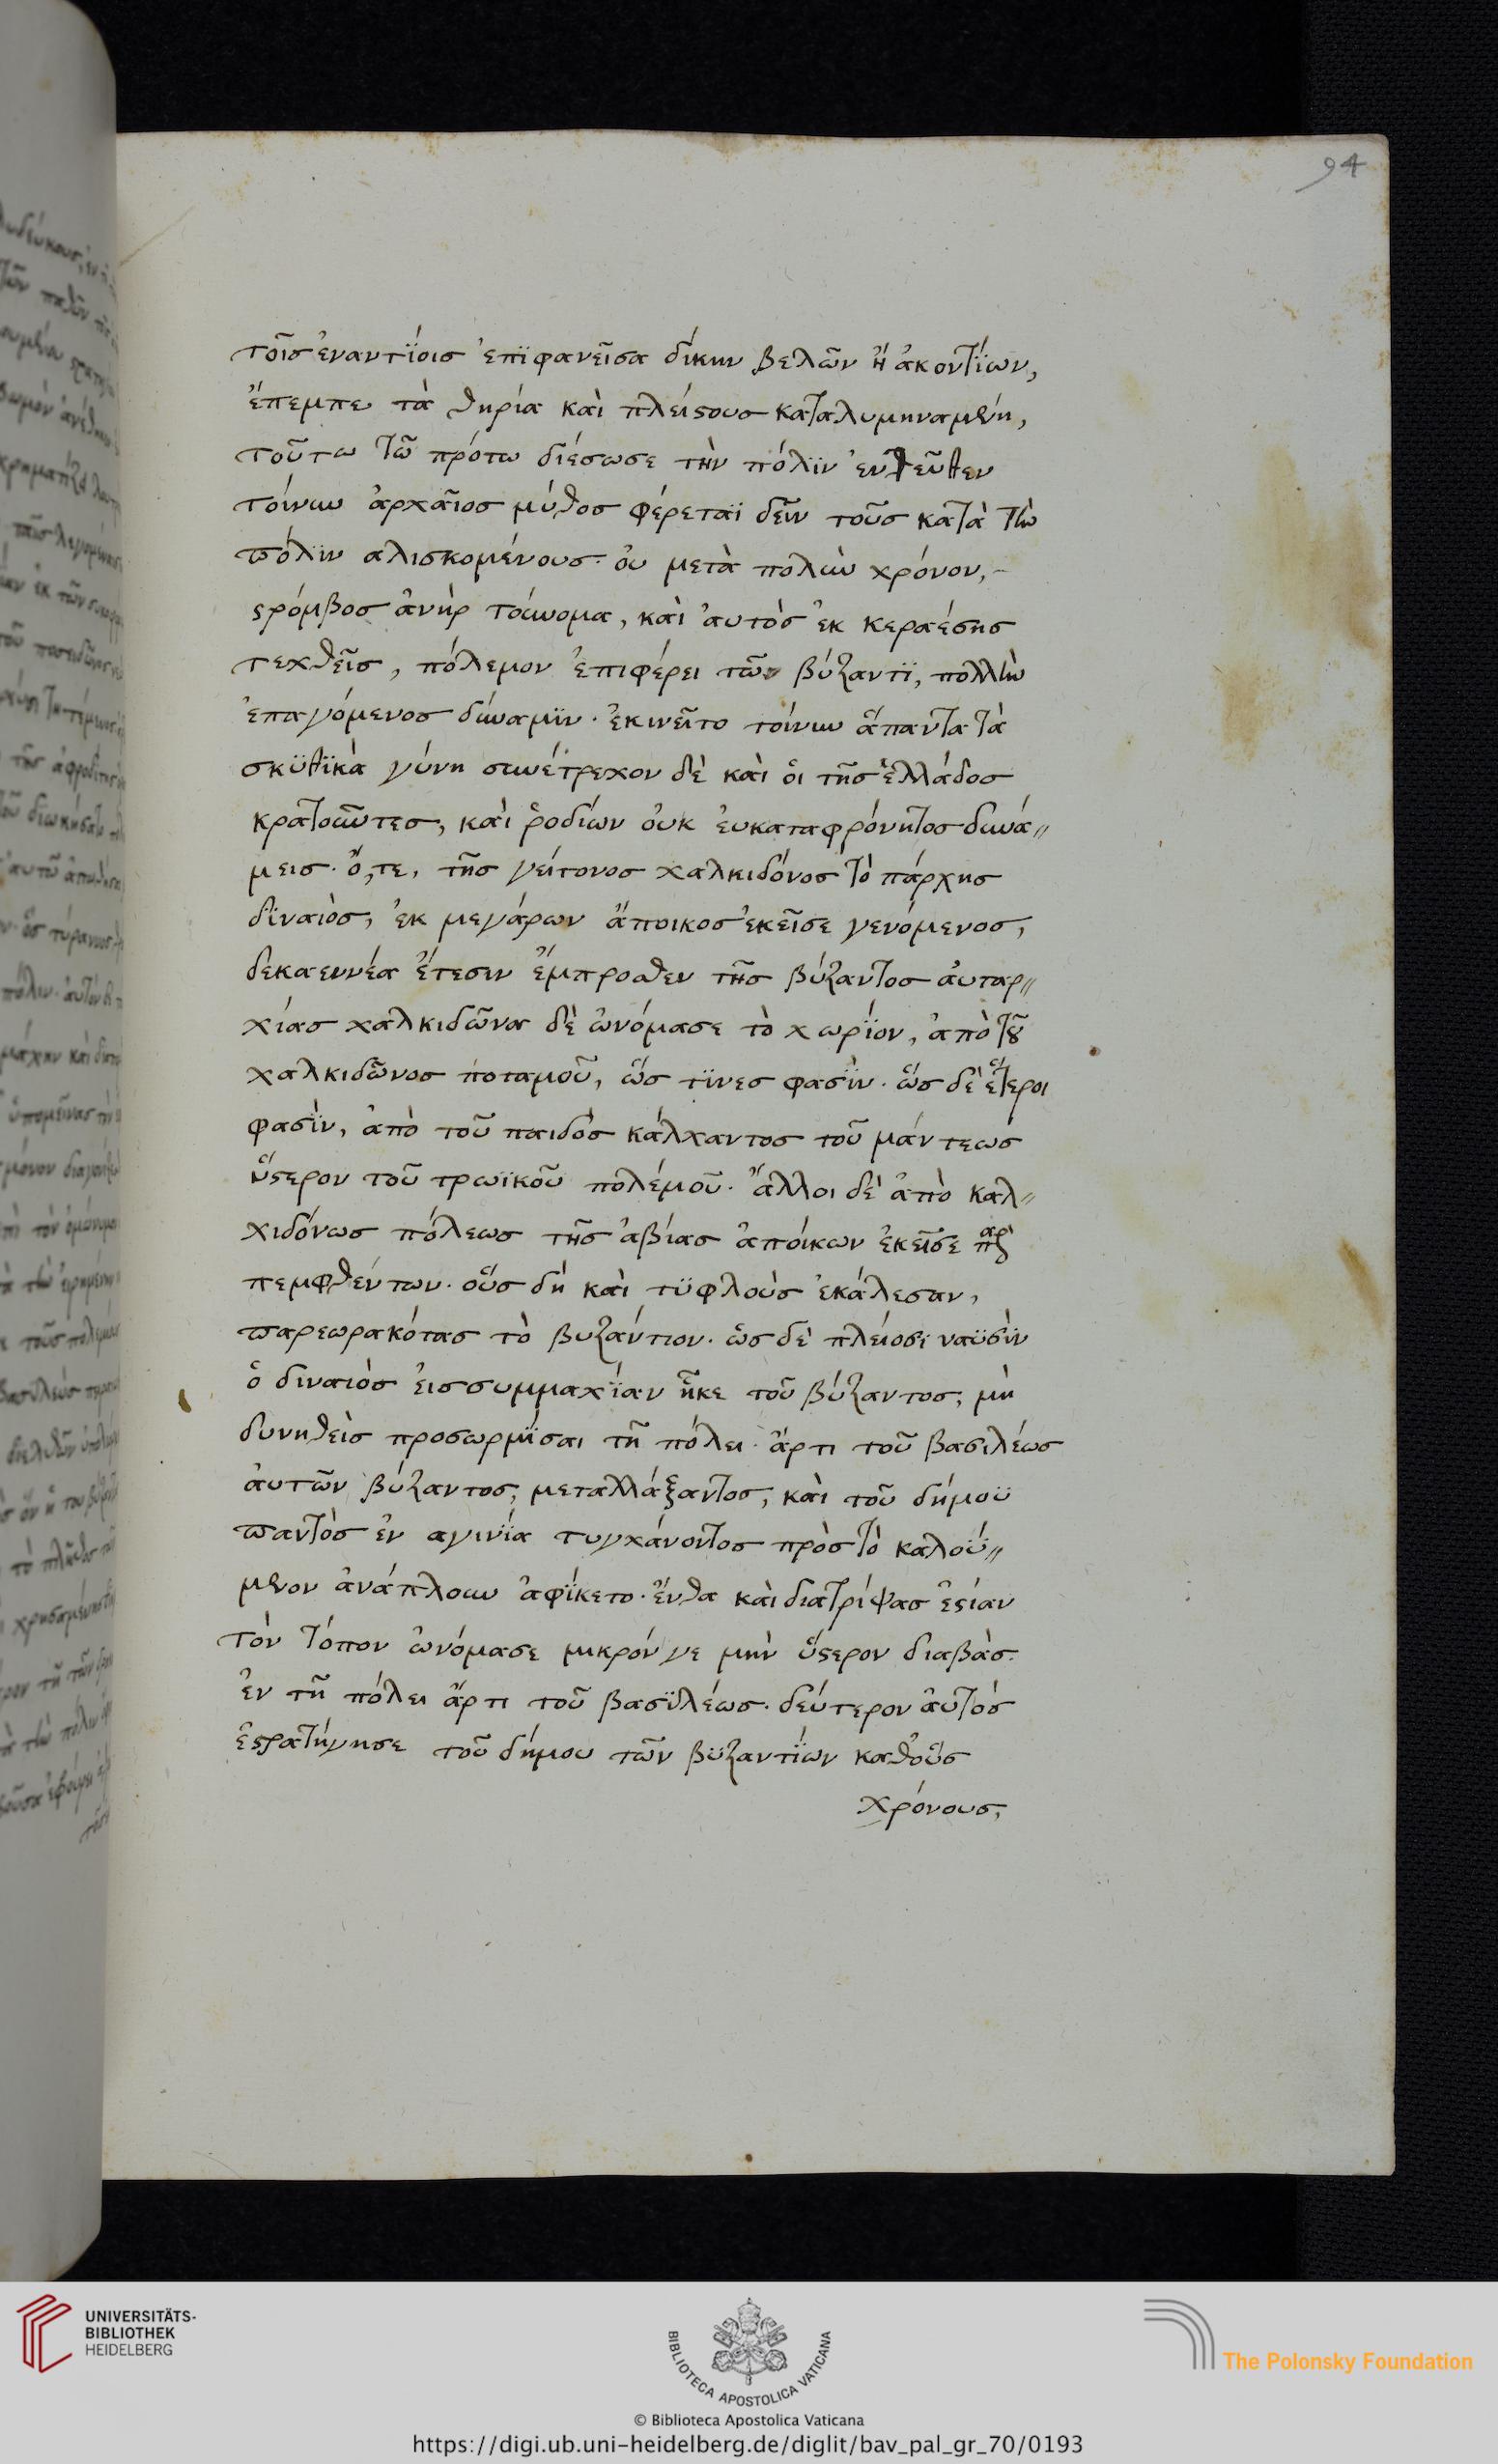 94
τοῖς ἐναντΐοις ἐπϊφανεῖσα δίκην βελῶν ἢ ἀκοντΐων,
ἔπεμπε τὰ θηρία καὶ πλείϛους καταλυμηναμένη,
τοῦτω τῶ πρότω διέσωσε τὴν πόλϊν ἐντεῦθεν
τοίνυν ἀρχαῖος μύθος φέρεταϊ δεῖν τοῦς κατὰ τὴν
πόλϊν αλισκομένους· οὐ μετὰ πολὺν χρόνον,-
ϛρόμβος ἀνὴρ τοὔνομα, καὶ ἀυτὸς ἐκ κεραέσης
τεχθεῖς, πόλεμον ἐπιφέρει τῶ βύζαντϊ, πολλὴν
ἐπαγόμενος δύναμϊν· ἐκινεῖτο τοίνυν ἅπαντα τὰ
σκϋθϊκὰ γύνη συνέτρεχον δὲ καὶ ὁι τῆς ἑλλάδος
κρατοῦντες, καὶ ῥοδίων ὀυκ ἐυκαταφρόνητος δυνά〃
μεις· ὅ,τε, τῆς γείτονος χαλκιδόνος τὸ πάρχης
δϊναιὸς, ἐκ μεγάρων ἄποικος ἐκεῖσε γενόμενος,
δεκαεννέα ἔτεσιν ἔμπροσθεν τῆς βύζαντος ἀυταρ〃
χίας χαλκιδῶνα δὲ ὠνόμασε τὸ χωρϊον, ἀπὸ τοῦ
χαλκιδῶνος ποταμοῦ, ὥς τϊνες φασϊν· ὥς δὲ ἕτεροι
φασϊν, ἀπὸ τοῦ παιδὸς κάλχαντος τοῦ μάντεως
ὕϛερον τοῦ τρωϊκοῦ πολέμοῦ· ἄλλοι δὲ ἀπὸ καλ〃
χιδόνως πόλεως τῆς ἀβίας ἀποίκων ἐκεῖσε παρ
πεμφθέντων· οὓς δὴ καὶ τϋφλοὺς ἐκάλεσαν,
παρεωρακότας τὸ βυζάντιον· ὥς δὲ πλείοσι ναϋσὶν
ὁ διναιὸς ἐις συμμαχΐαν ἧκε τοῦ βύζαντος, μὴ
δυνηθεὶς προσωρμΐσαι τῆ πόλει· ἄρτι τοῦ βασιλέως
ἀυτῶν βύζαντος, μεταλλάξαντος, καὶ τοῦ δήμοϋ
παντὸς ἐν αγινΐα τυγχάνοντος πρὸς τὸ καλοΰ〃
μενον ἀνάπλουν ἀφΐκετο· ἔνθα καὶ διατρίψας ἑϛίαν
τὸν τόπον ὠνόμασε μικρόν γε μὴν ὕϛερον διαβὰς·
ἐν τῆ πόλει ἄρτι τοῦ βασϊλέως· δεύτερον ἀυτὸς
ἐϛρατήγησε τοῦ δήμου τῶν βϋζαντΐων καθ'οὓς
χρόνους,
UNIVERSITÄTS-
BIBLIOTHEK
HEIDELBERG
BIBLIOTECA APOSTOLICA VATICANA
The Polonsky Foundation
© Biblioteca Apostolica Vaticana
https://digi.ub.uni-heidelberg.de/diglit/bav_pal_gr_70/0193